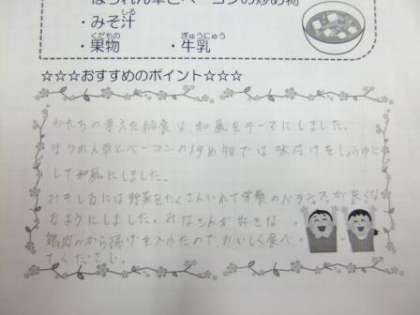 ほうれん草とベーコンの炒め物
・みそ汁
しる
・果物
くだもの
・牛乳
ぎゅうにゅう
☆☆☆おすすめのポイント☆☆☆
わたちの考えた給食は和風をテーマにしました。
ほうれん草とベーコンの炒め物では味付けをしょうゆに
して和風にしました。
みそしるには野菜をたくさんいれて栄養のバランスが良くな
るようにしました。みなさんが好きな
鶏肉のから揚げを入れたのでおいしく食べ
てください。